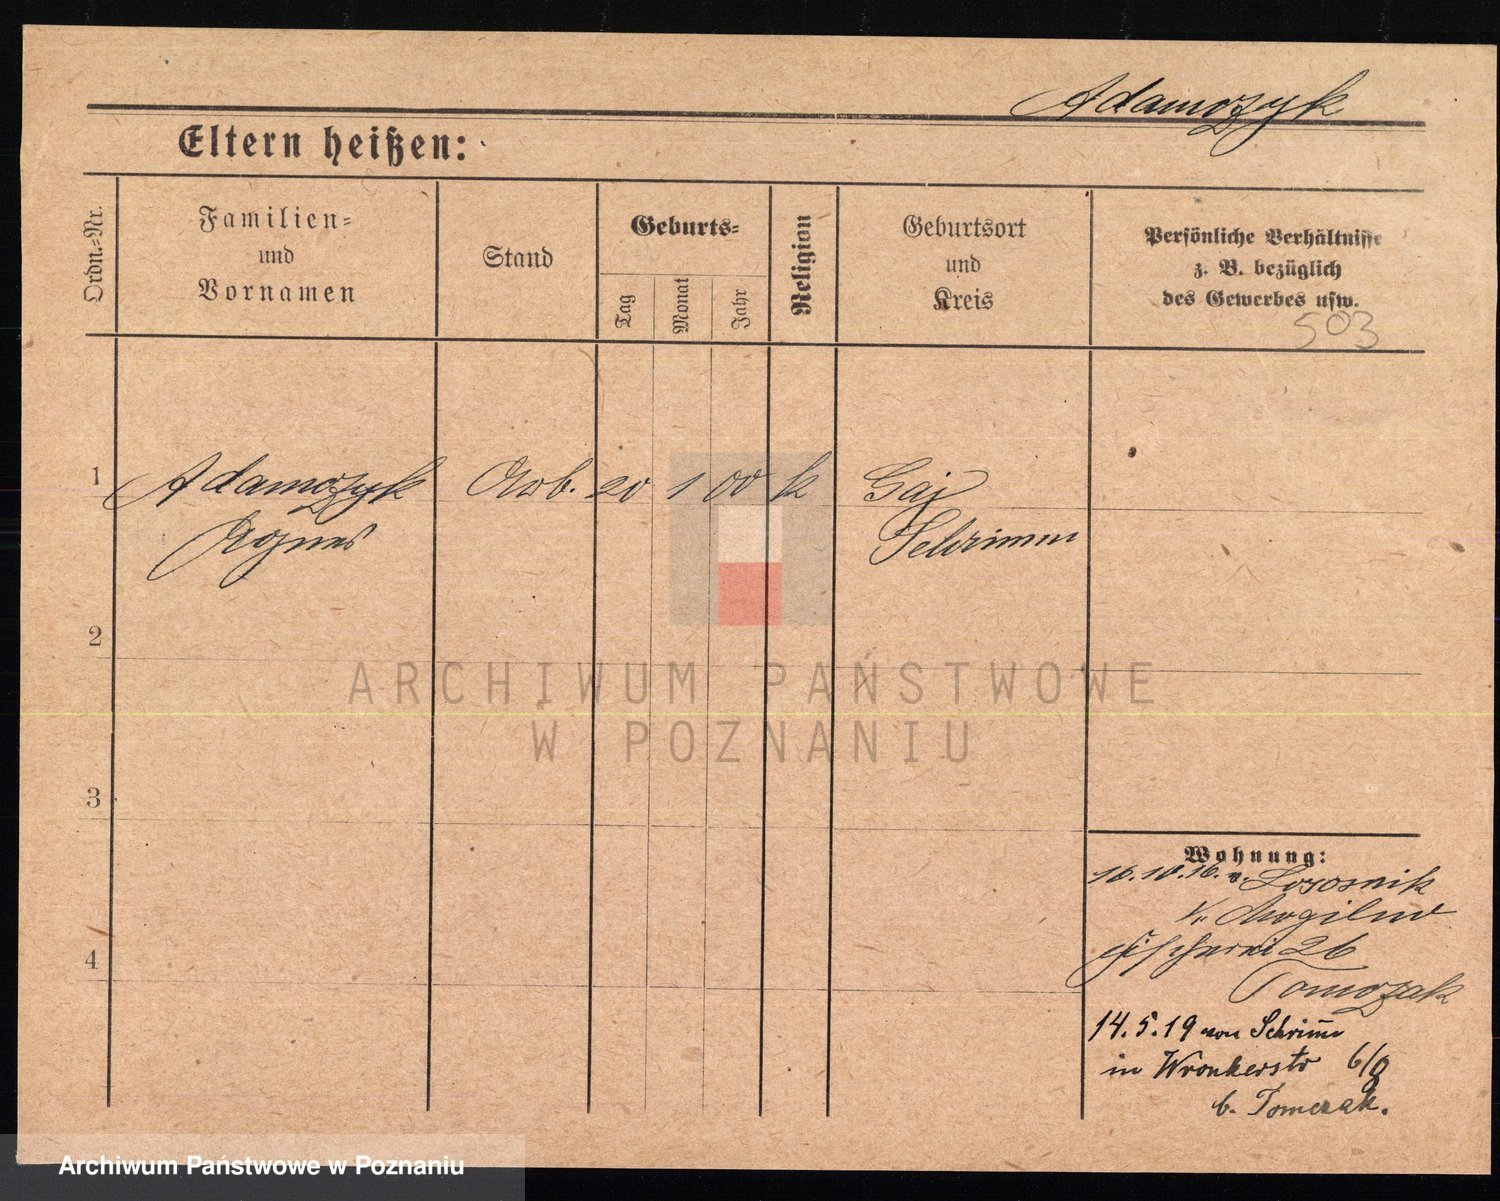 Adamczyk
Eltern heißen:
Ordn.=Nr.
Familien=
und
Vornamen
Stand
Geburts=
Tag
Monat
Jahr
Religion
Geburtsort
und
Kreis
Persönliche Verhältnisse
z. B. bezüglich
des Gewerbes usw.
503
1
Adamczyk
Agnes
Arb.
20
1
00
k
Gaj
Schrimm
2
3
4
ARCHIWUM PAŃSTWOWE
W POZNANIU
Wohnung:
16.10.16. v.
Kr. Mogilno
Fischerei 26
Tomczak
14.5.19 von Schrimm
in Wronkerstr 6/8
b. Tomczak.
Archiwum Państwowe w Poznaniu